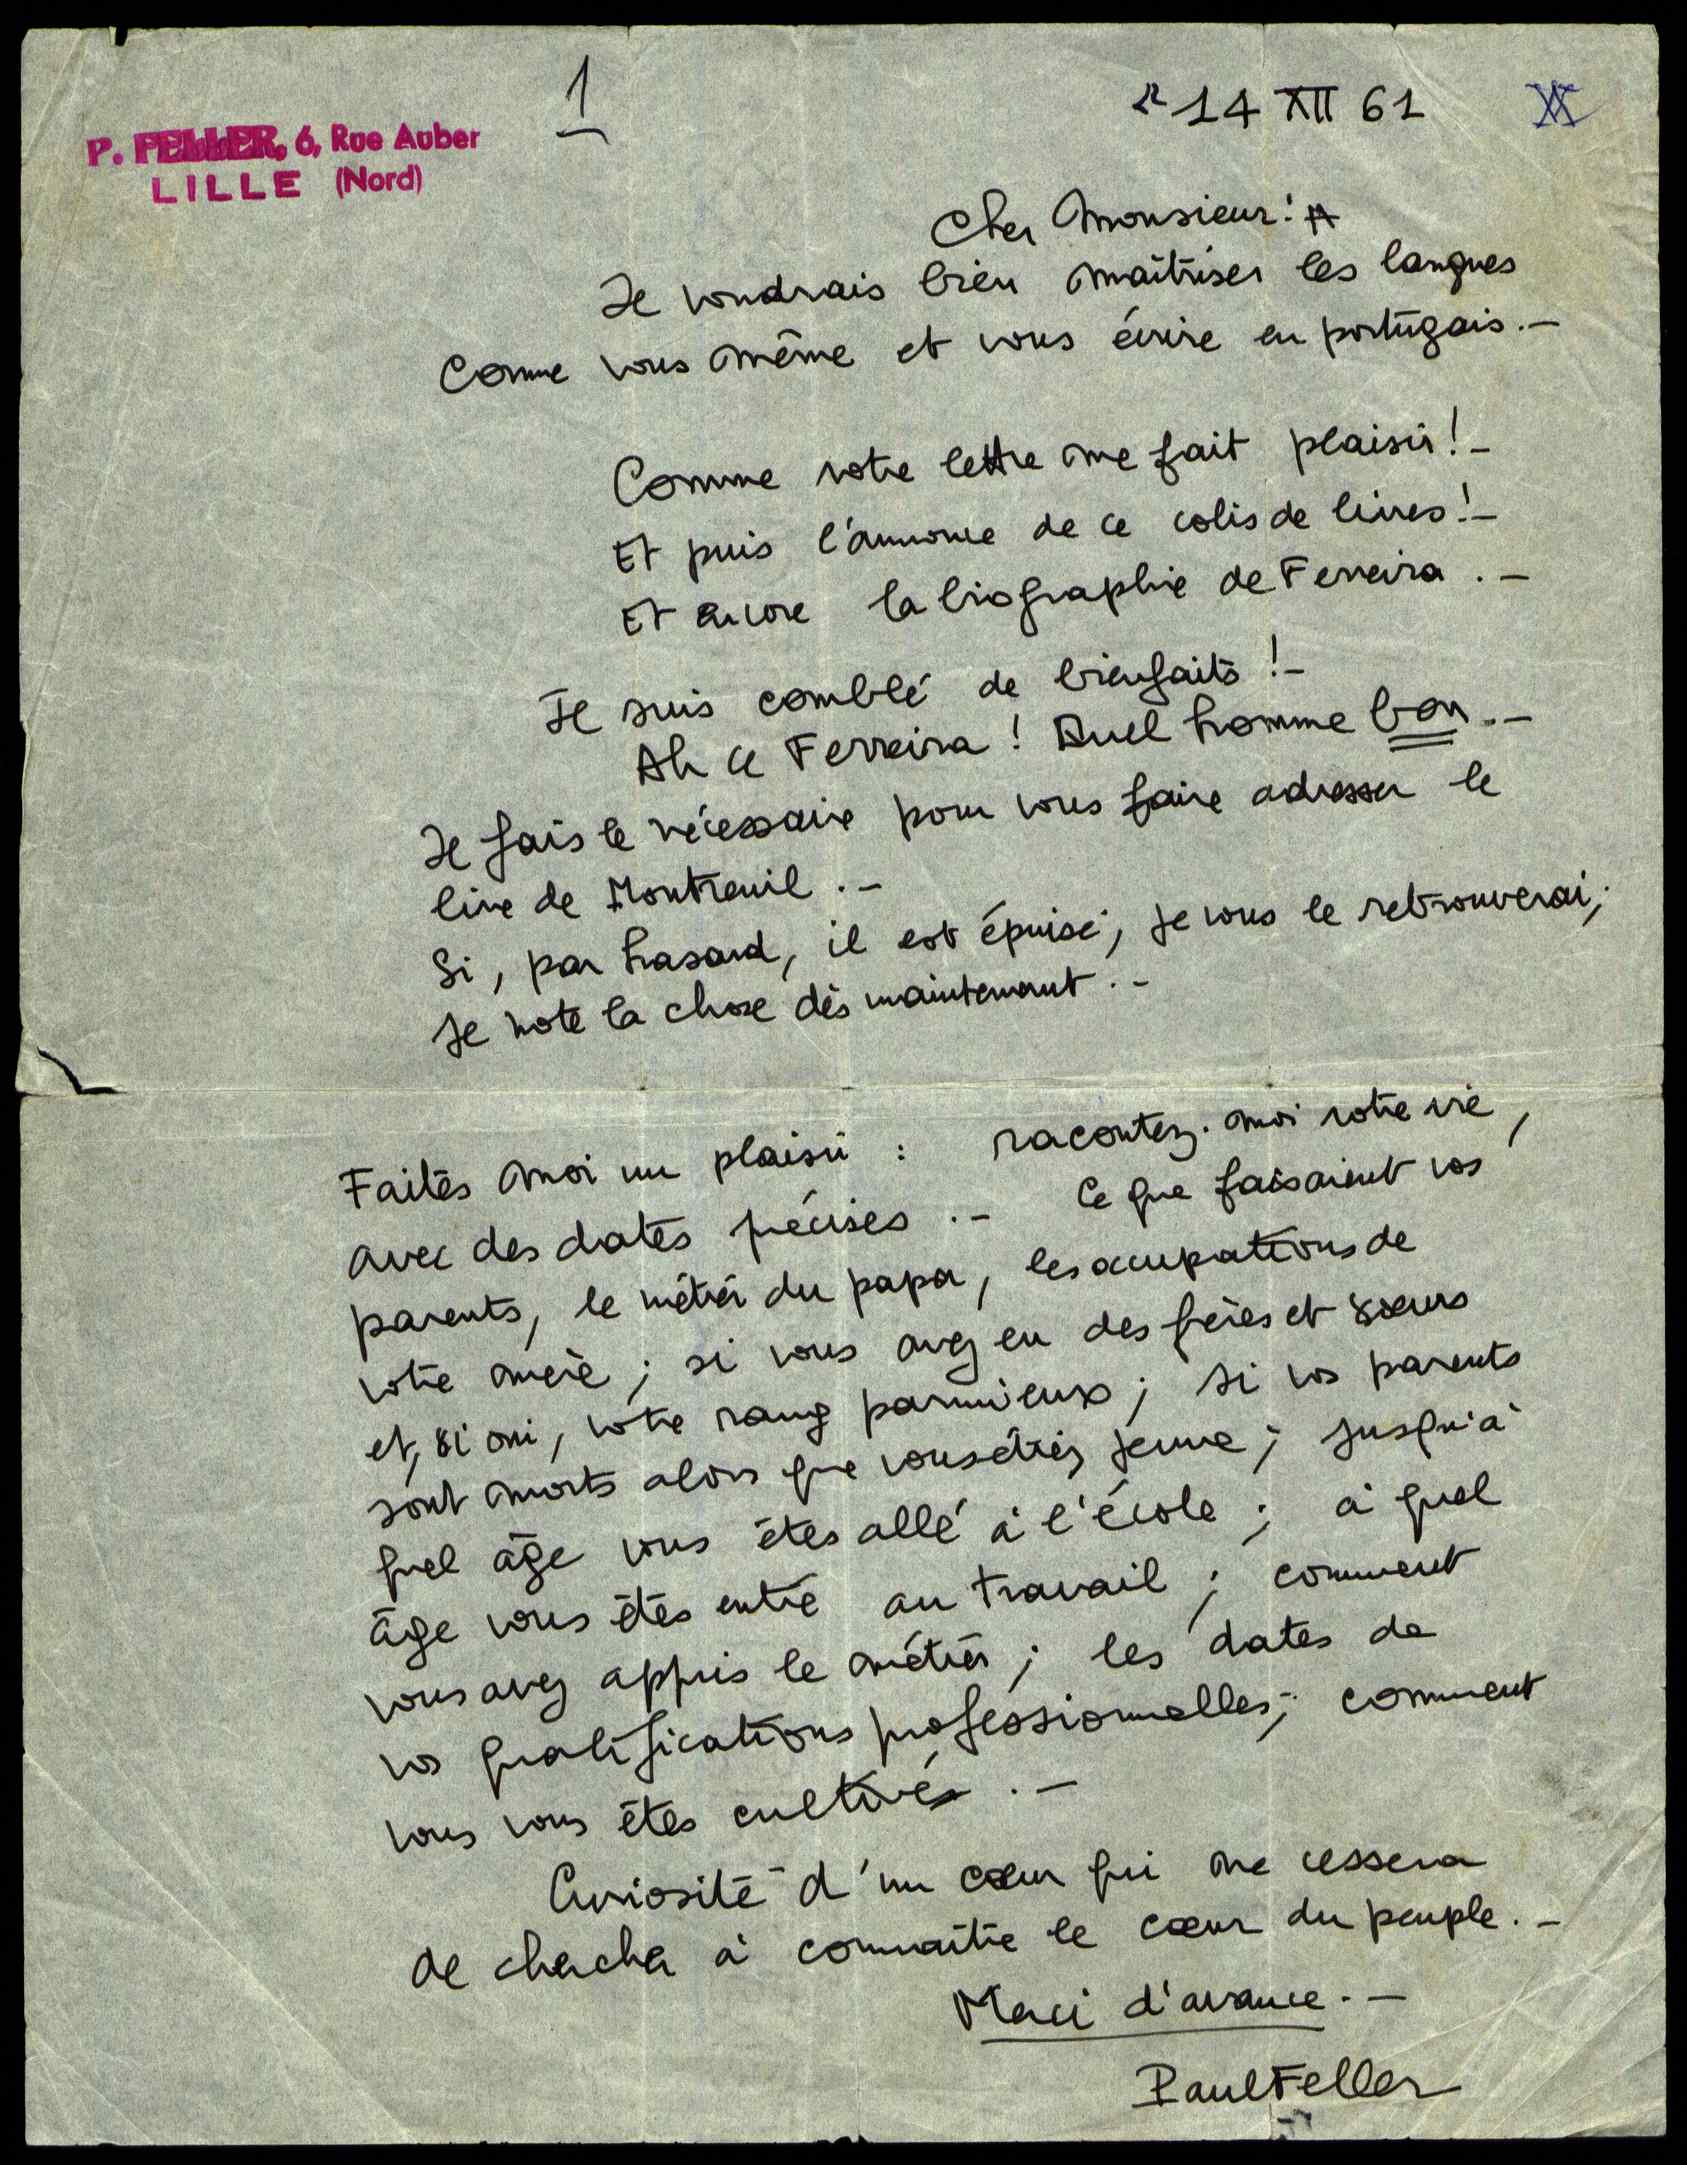 P. FELLER, 6, Rue Auber
LILLE (Nord)
1
14 XII 61
Cher Monsieur :
Je voudrais bien maîtriser les langues
comme vous même et vous écrire en portugais. -
Comme votre lettre me fait plaisir ! -
Et puis l'annonce de ce colis de livres ! -
Et encore la biographie de Ferreira . -
Je suis comblé de bienfaits ! -
Ah ce Ferreira ! Quel homme bon . -
Je fais le nécessaire pour vous faire adresser le
livre de Montreuil . -
Si, par hasard, il est épuisé, je vous le retrouverai ;
je note la chose dès maintenant . -
Faites moi un plaisir : racontez-moi votre vie,
avec des dates précises . - Ce que faisaient vos
parents, le métier du papa, les occupations de
votre mère ; si vous avez eu des frères et sœurs
et, si oui, votre rang parmi eux ; si vos parents
sont morts alors que vous étiez jeune ; jusqu'à
quel âge vous êtes allé à l'école ; à quel
âge vous êtes entré au travail ; comment
vous avez appris le métier ; les dates de
vos qualifications professionnelles ; comment
vous vous êtes cultivé . -
Curiosité d'un cœur qui ne cessera
de chercher à connaître le cœur du peuple . -
Merci d'avance . -
Paul Feller